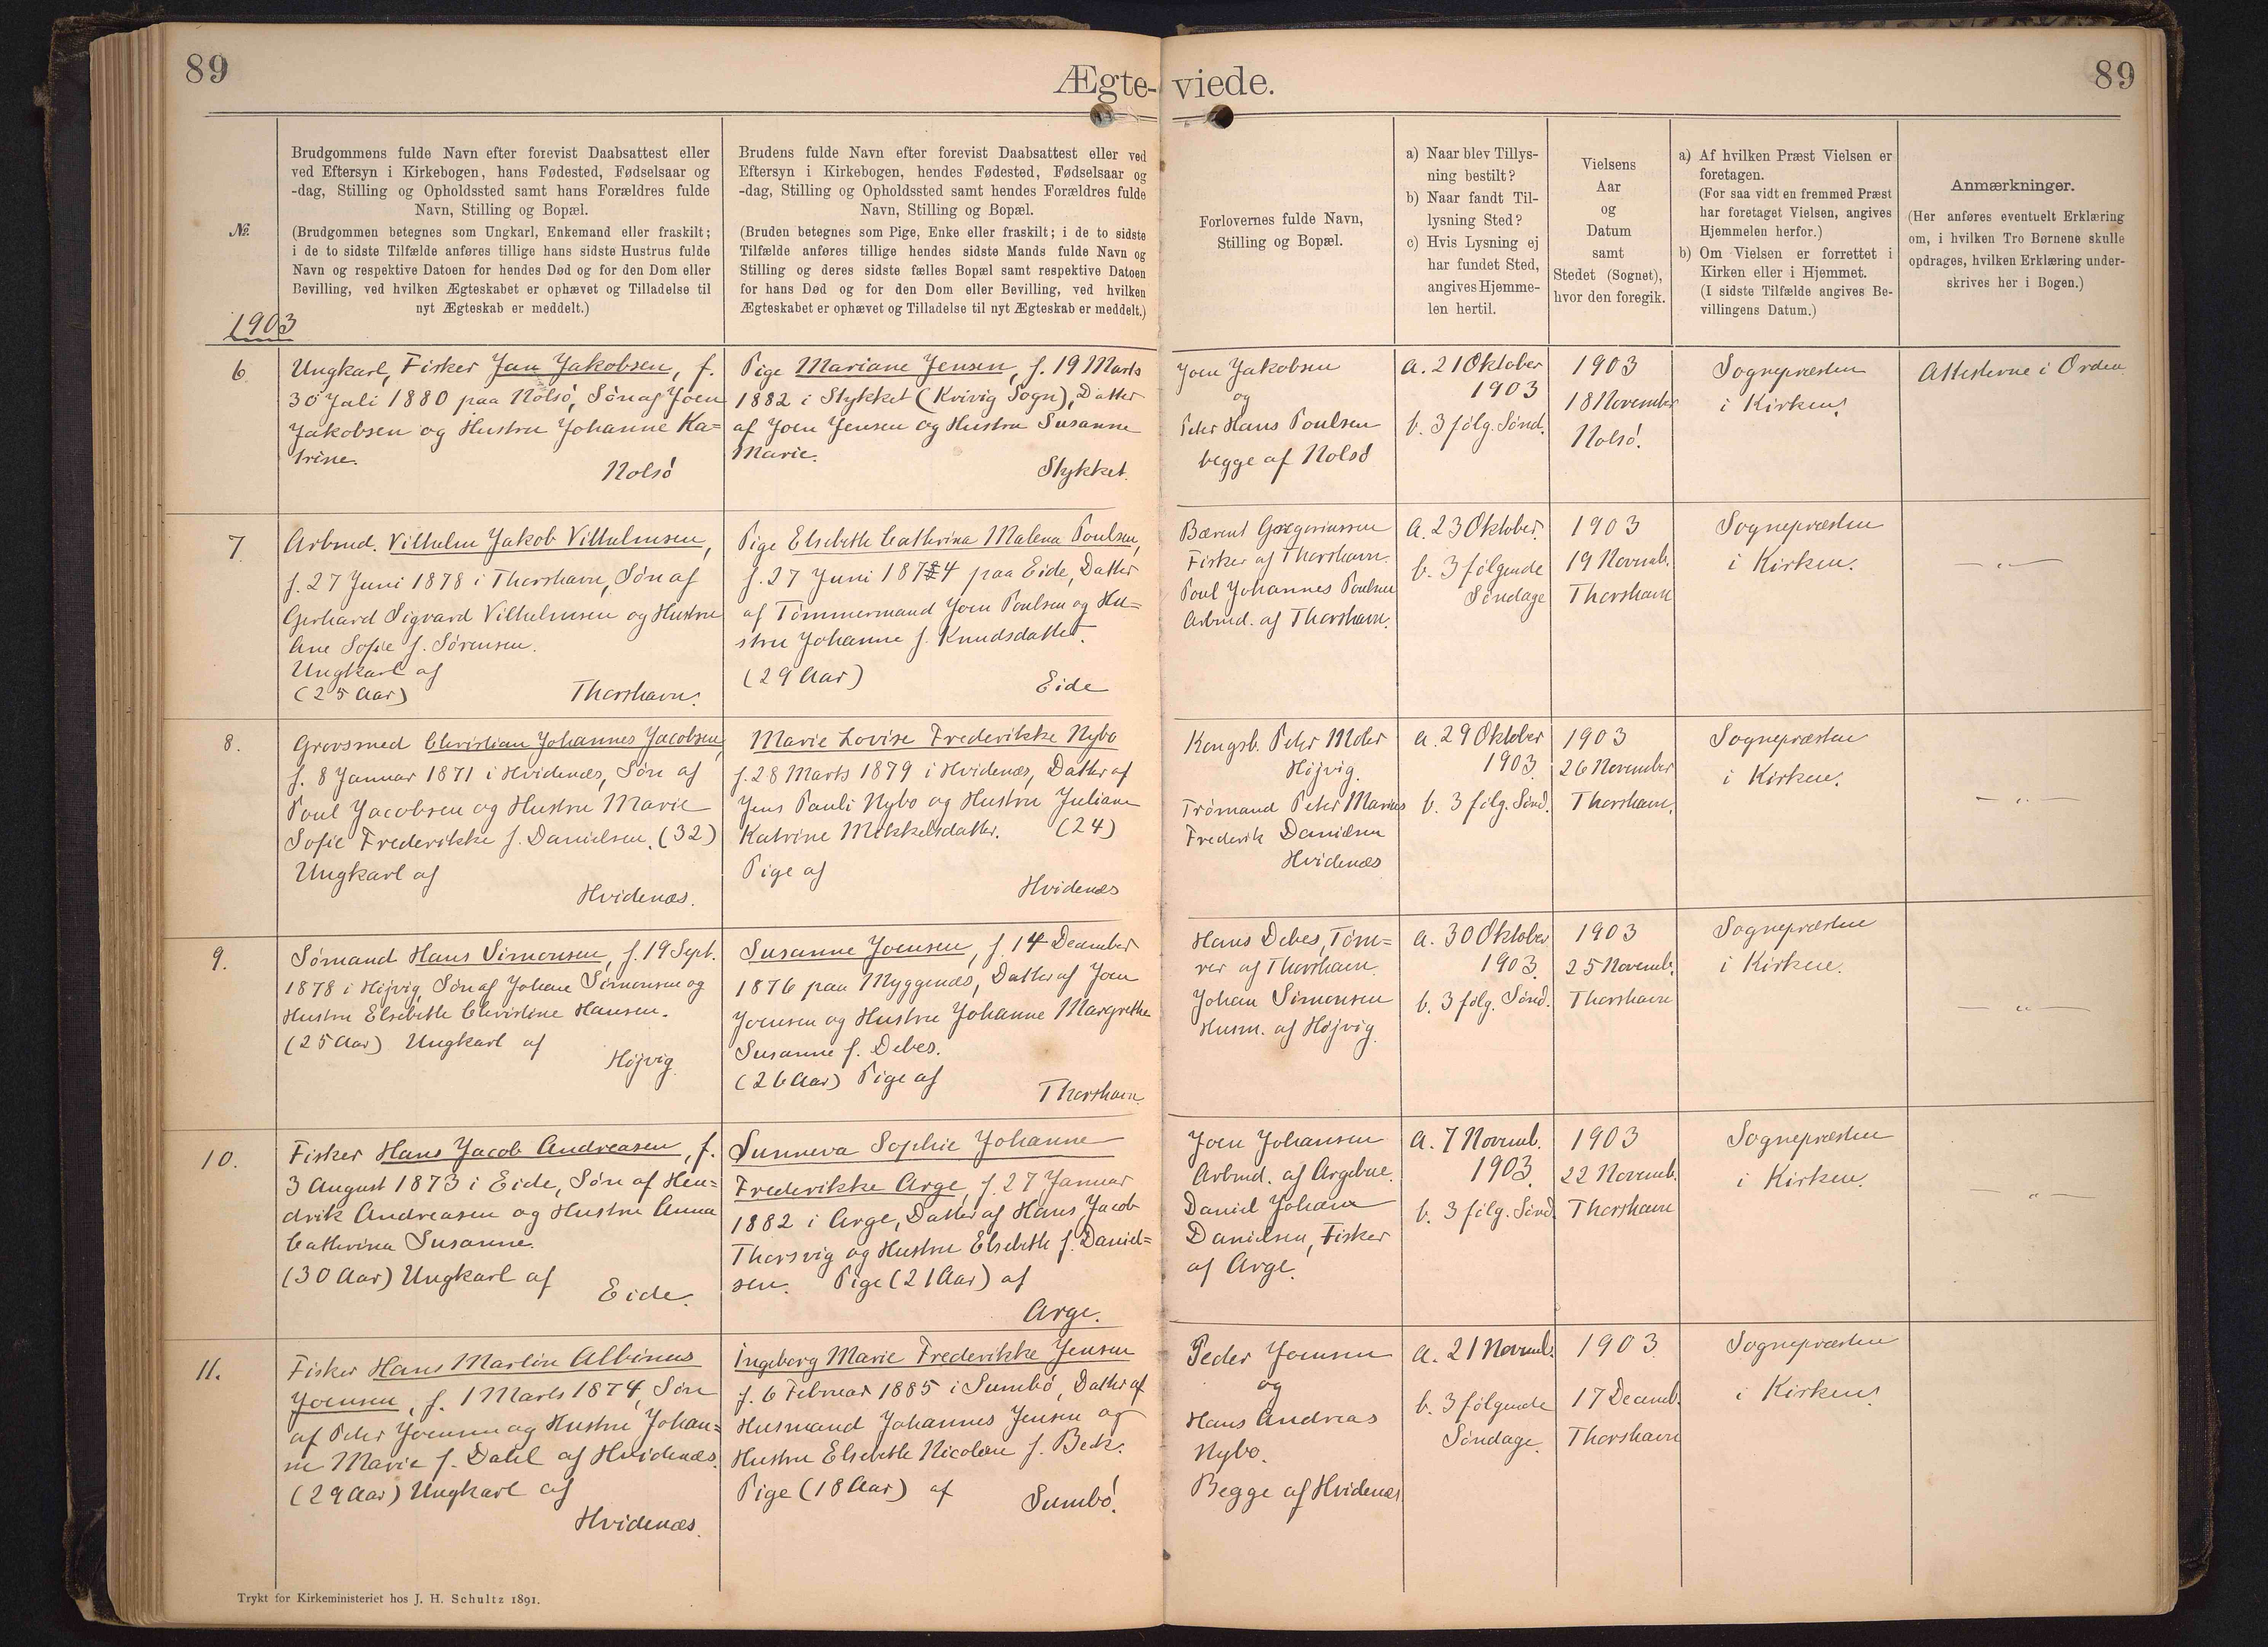 89
Ægte-viede.
89
№
1903
Brudgommens fulde Navn efter forevist Daabsattest eller
ved Eftersyn i Kirkebogen, hans Fødested, Fødselsaar og
-dag, Stilling og Opholdssted samt hans Forældres fulde
Navn, Stilling og Bopæl.
(Brudgommen betegnes som Ungkarl, Enkemand eller fraskilt;
i de to sidste Tilfælde anføres tillige hans sidste Hustrus fulde
Navn og respektive Datoen for hendes Død og for den Dom eller
Bevilling, ved hvilken Ægteskabet er ophævet og Tilladelse til
nyt Ægteskab er meddelt.)
Brudens fulde Navn efter forevist Daabsattest eller ved
Eftersyn i Kirkebogen, hendes Fødested, Fødselsaar og
-dag, Stilling og Opholdssted samt hendes Forældres fulde
Navn, Stilling og Bopæl.
(Bruden betegnes som Pige, Enke eller fraskilt; i de to sidste
Tilfælde anføres tillige hendes sidste Mands fulde Navn og
Stilling og deres sidste fælles Bopæl samt respektive Datoen
for hans Død og for den Dom eller Bevilling, ved hvilken
Ægteskabet er ophævet og Tilladelse til nyt Ægteskab er meddelt.)
Forlovernes fulde Navn,
Stilling og Bopæl.
a) Naar blev Tillys-
ning bestilt?
b) Naar fandt Til-
lysning Sted?
c) Hvis Lysning ej
har fundet Sted,
angives Hjemme-
len hertil.
Vielsens
Aar
og
Datum
samt
Stedet (Sognet),
hvor den foregik.
a) Af hvilken Præst Vielsen er
foretagen.
(For saa vidt en fremmed Præst
har foretaget Vielsen, angives
Hjemmelen herfor.)
b) Om Vielsen er forrettet i
Kirken eller i Hjemmet.
(I sidste Tilfælde angives Be-
villingens Datum.)
Anmærkninger.
(Her anføres eventuelt Erklæring
om, i hvilken Tro Børnene skulle
opdrages, hvilken Erklæring under-
skrives her i Bogen.)
6
Ungkarl, Fisker Jan Jakobsen, f.
30 Juli 1880 paa Nolsö, Søn af Joen
Jakobsen og Hustru Johanne Ka=
trine.
Nolsö
Pige Mariane Jensen, f. 19 Marts
1882 i Stykket (Kvivig Sogn), Datter
af Joen Jensen og Hustru Susanne
Marie.
Stykket.
Joen Jakobsen
og
Peter Hans Poulsen
begge af Nolsö
a. 21 Oktober
1903
b. 3 følg. Sønd.
1903
18 November
Nolsö.
Sognepræsten
i Kirken.
Attesterne i Orden.
7.
Arbmd. Vilhelm Jakob Vilhelmsen,
f. 27 Juni 1878 i Thorshavn, Søn af
Gerhard Sigvard Vilhelmsen og Hustru
Ane Sofie f. Sørensen.
Ungkarl af
(25 Aar)
Thorshavn.
Pige Elsebeth Cathrina Malena Poulsen,
f. 27 Juni 1874 paa Eide, Datter
af Tömmermand Joen Poulsen og Hu=
stru Johanne f. Knudsdatter.
(29 Aar)
Eide
Bærent Gregoriussen
Fisker af Thorshavn.
Poul Johannes Poulsen
Arbmd. af Thorshavn.
a. 23 Oktober.
b. 3 følgende
Søndage
1903
19 Novemb.
Thorshavn
Sognepræsten
i Kirken.
— „ —
8.
Grovsmed Christian Johannes Jacobsen,
f. 8 Januar 1871 i Hvidenæs, Søn af
Poul Jacobsen og Hustru Marie
Sofie Frederikke f. Danielsen. (32)
Ungkarl af
Hvidenæs.
Marie Lovise Frederikke Nybo
f. 28 Marts 1879 i Hvidenæs, Datter af
Jens Pauli Nybo og Hustru Juliane
Katrine Mikkelsdatter. (24)
Pige af
Hvidenæs
Kongsb. Peter Mohr
Höjvig.
Frömand Peter Marius
Frederik Danielsen
Hvidenæs
a. 29 Oktober
1903.
b. 3 følg. Sønd.
1903
26 November
Thorshavn.
Sognepræsten
i Kirken.
— „ —
9.
Sömand Hans Simonsen, f. 19 Sept.
1878 i Höjvig, Søn af Johan Simonsen og
Hustru Elsebeth Christine Hansen.
(25 Aar) Ungkarl af
Höjvig.
Susanne Joensen, f. 14 December
1876 paa Myggenæs, Datter af Joen
Joensen og Hustru Johanne Margrethe
Susanne f. Debes.
(26 Aar) Pige af
Thorshavn.
Hans Debes, Töm=
rer af Thorshavn.
Johan Simonsen
Husm. af Höjvig.
a. 30 Oktober
1903.
b. 3 følg. Sønd.
1903
25 Novemb.
Thorshavn
Sognepræsten
i Kirken.
— „ —
10.
Fisker Hans Jacob Andreasen, f.
3 August 1873 i Eide, Søn af Hen=
drik Andreasen og Hustru Anna
Cathrina Susanne.
(30 Aar) Ungkarl af
Eide.
Sunneva Sophie Johanne
Frederikke Arge, f. 27 Januar
1882 i Arge, Datter af Hans Jacob
Thorsvig og Hustru Elsebeth f. Daniel=
sen. Pige (21 Aar) af
Arge.
Joen Johansen
Arbmd. af Argebue.
Daniel Johan
Danielsen, Fisker
af Arge.
a. 7 Novemb.
1903.
b. 3 følg. Sønd.
1903
22 Novemb.
Thorshavn
Sognepræsten
i Kirken.
— „ —
11.
Fisker Hans Martin Albinus
Joensen, f. 1 Marts 1874, Søn
af Peter Joensen og Hustru Johan=
ne Marie f. Dahl af Hvidenæs.
(29 Aar) Ungkarl af
Hvidenæs.
Ingeborg Marie Frederikke Jensen
f. 6 Februar 1885 i Sumbö, Datter af
Husmand Johannes Jensen og
Hustru Elsebeth Nicolene f. Beck.
Pige (18 Aar) af
Sumbö.
Peder Joensen
og
Hans Andreas
Nybo.
Begge af Hvidenæs
a. 21 Novemb.
b. 3 følgende
Søndage.
1903
17 Decemb.
Thorshavn
Sognepræsten
i Kirken.
Trykt for Kirkeministeriet hos J. H. Schultz 1891.